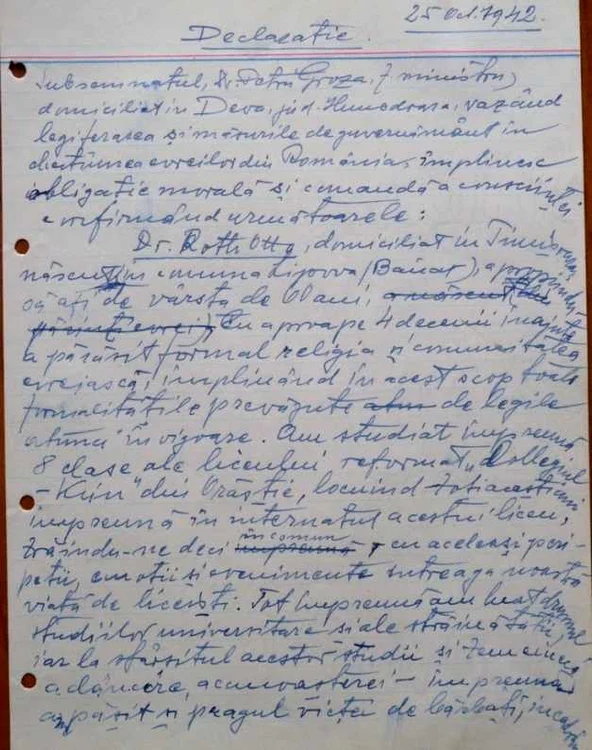 25 Oct. 1942.
Declarație.
Subsemnatul, Dr Petru Groza, f. ministru,
domiciliat in Deva, jud. Hunedoara, văzând
legiferarea și măsurile de guvernământ in
chestiunea evreilor din România, împlinesc
obligație morală și comandă a conștiinței
confirmând următoarele:
Dr. Roth Otto, domiciliat in Timișoara,
născut in comuna Lipova (Banat),
de vârsta de 60 ani, a născut din
părinți evrei, cu aproape 4 decenii înainte
a părăsit formal religia și comunitatea
evrejască, împlinând in acest scop toate
formalitățile prevăzute atun de legile
atunci in vigoare. Am studiat împreună
8 clase ale liceului reformat „Collegiul
-Kún" din Orăștie, locuind toți acești ani
împreună in internatul acestui liceu,
in comun
trăindu-ne deci împreună cu aceleași peri-
petii, emoții și evenimente intreaga noastră
viață de liceiști. Tot împreună am luat drumul
studiilor universitare și ale străinătății,
iar la sfârșitul acestor studii și
împreună
am pășit și pragul vieții de bărbați,